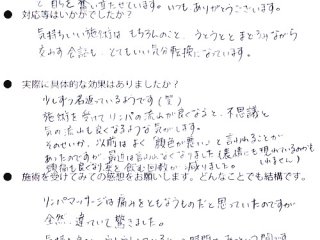 と自らを奮い立たせています。いつもありがとうございます。
● 対応等はいかがでしたか?
気持ちいい施術は もちろんのこと、うとうとと まどろみながら
交わす会話も、とてもいい気分転換になっています。
● 実際に具体的な効果はありましたか?
少しずつ若返っているようです(笑)
施術を受けてリンパの流れが良くなると、不思議と
気の流れも良くなるような気がします。
そのせいか、以前はよく「顔色が悪い」と言われることが
あったのですが、最近は言われなくなりました(表情にも現れているのかも
しれません)
頭痛も良くなり薬を飲む回数が減りました。
● 施術を受けてみての感想をお願いします。どんなことでも結構です。
リンパマッサージは痛みをともなうものだと思っていたのですが
全然、違っていて驚きました。